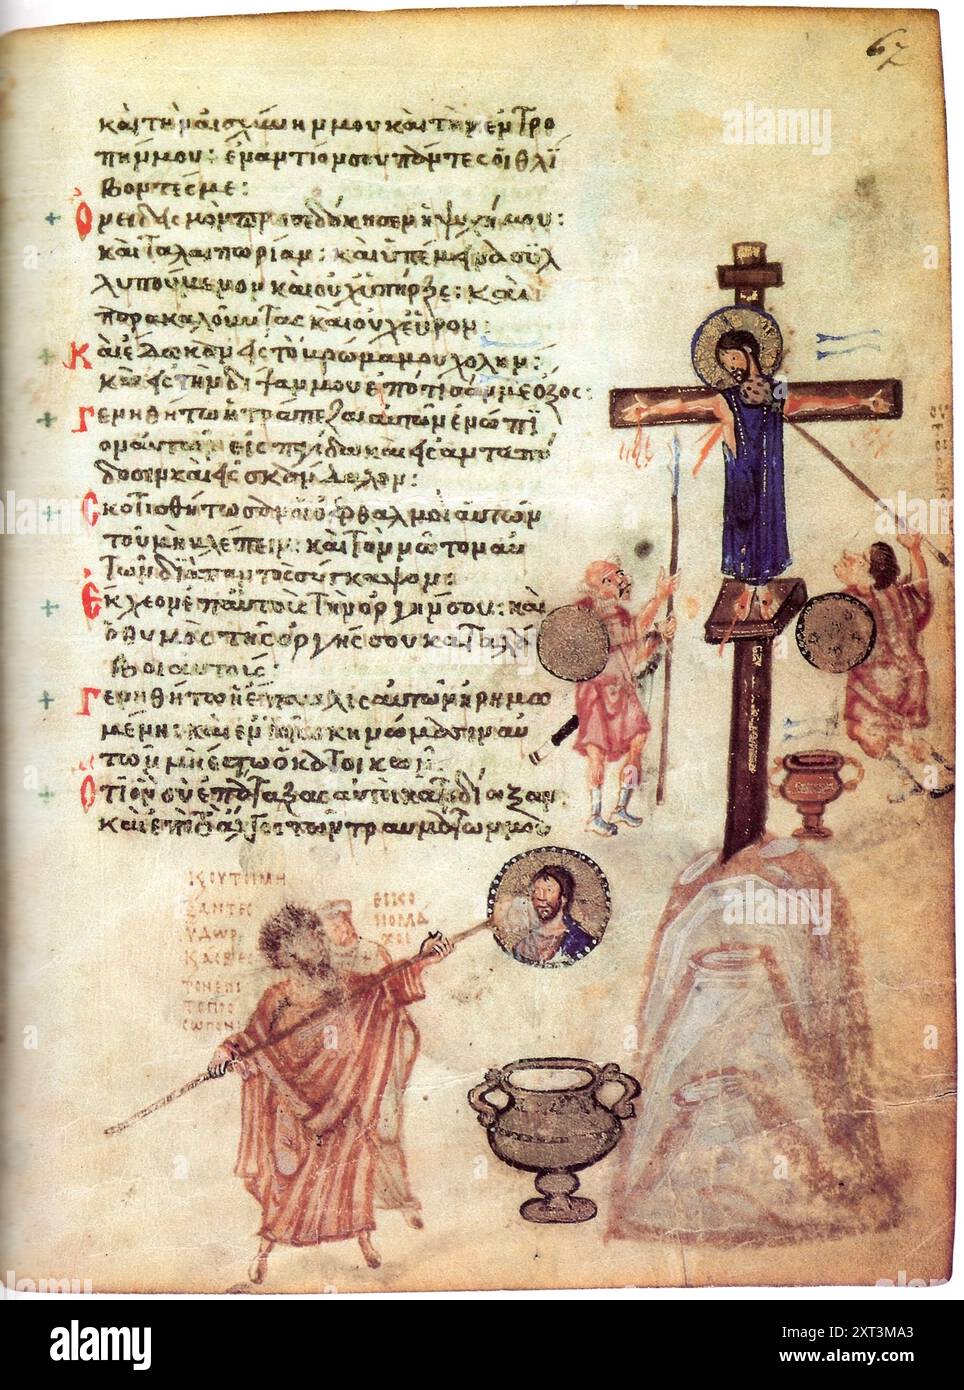 67
καὶ τὴν αἰσχύνην μου καὶ τὴν ἐντρο
πήν μου: ἐναντίον σου πάντες οἱ θλί
βοντές με:
Ὀνειδισμὸν προσεδόκησεν ἡ ψυχή μου:
καὶ ταλαιπωρίαν: καὶ ὑπέμεινα συλ
λυπούμενον καὶ οὐχ ὑπῆρξε: καὶ
παρακαλοῦντας καὶ οὐχ εὗρον:
Καὶ ἔδωκαν εἰς τὸ βρῶμά μου χολήν:
καὶ εἰς τὴν δίψαν μου ἐπότισάν με ὄξος:
Γενηθήτω ἡ τράπεζα αὐτῶν ἐνώπι
ον αὐτῶν εἰς παγίδα καὶ εἰς ἀνταπό
δοσιν καὶ εἰς σκάνδαλον:
Σκοτισθήτωσαν οἱ ὀφθαλμοὶ αὐτῶν
τοῦ μὴ βλέπειν: καὶ τὸν νῶτον αὐ
τῶν διὰ παντὸς σύγκαμψον:
Ἔκχεον ἐπ' αὐτοὺς τὴν ὀργήν σου: καὶ
ὁ θυμὸς τῆς ὀργῆς σου καταλά
βοι αὐτούς:
Γενηθήτω ἡ ἔπαυλις αὐτῶν ἠρημω
μένη: καὶ ἐν τοῖς σκηνώμασιν αὐ
τῶν μὴ ἔστω ὁ κατοικῶν:
Ὅτι ὃν σὺ ἐπάταξας αὐτοὶ κατεδίωξαν
καὶ ἐπὶ τὸ ἄλγος τῶν τραυμάτων μου
ΞΑΝΤΕΣ
ΥΔΩΡ
ΤΟΝ ΕΠΙ
ΤΟ ΠΡΟ
ΣΩΠΟΝ
ΕΙΚΟ
ΝΟΜΑ
ΧΟΙ
alamy
alamy
alamy
alamy
alamy
alamy
alamy
Image ID: 2XT3MA3
www.alamy.com